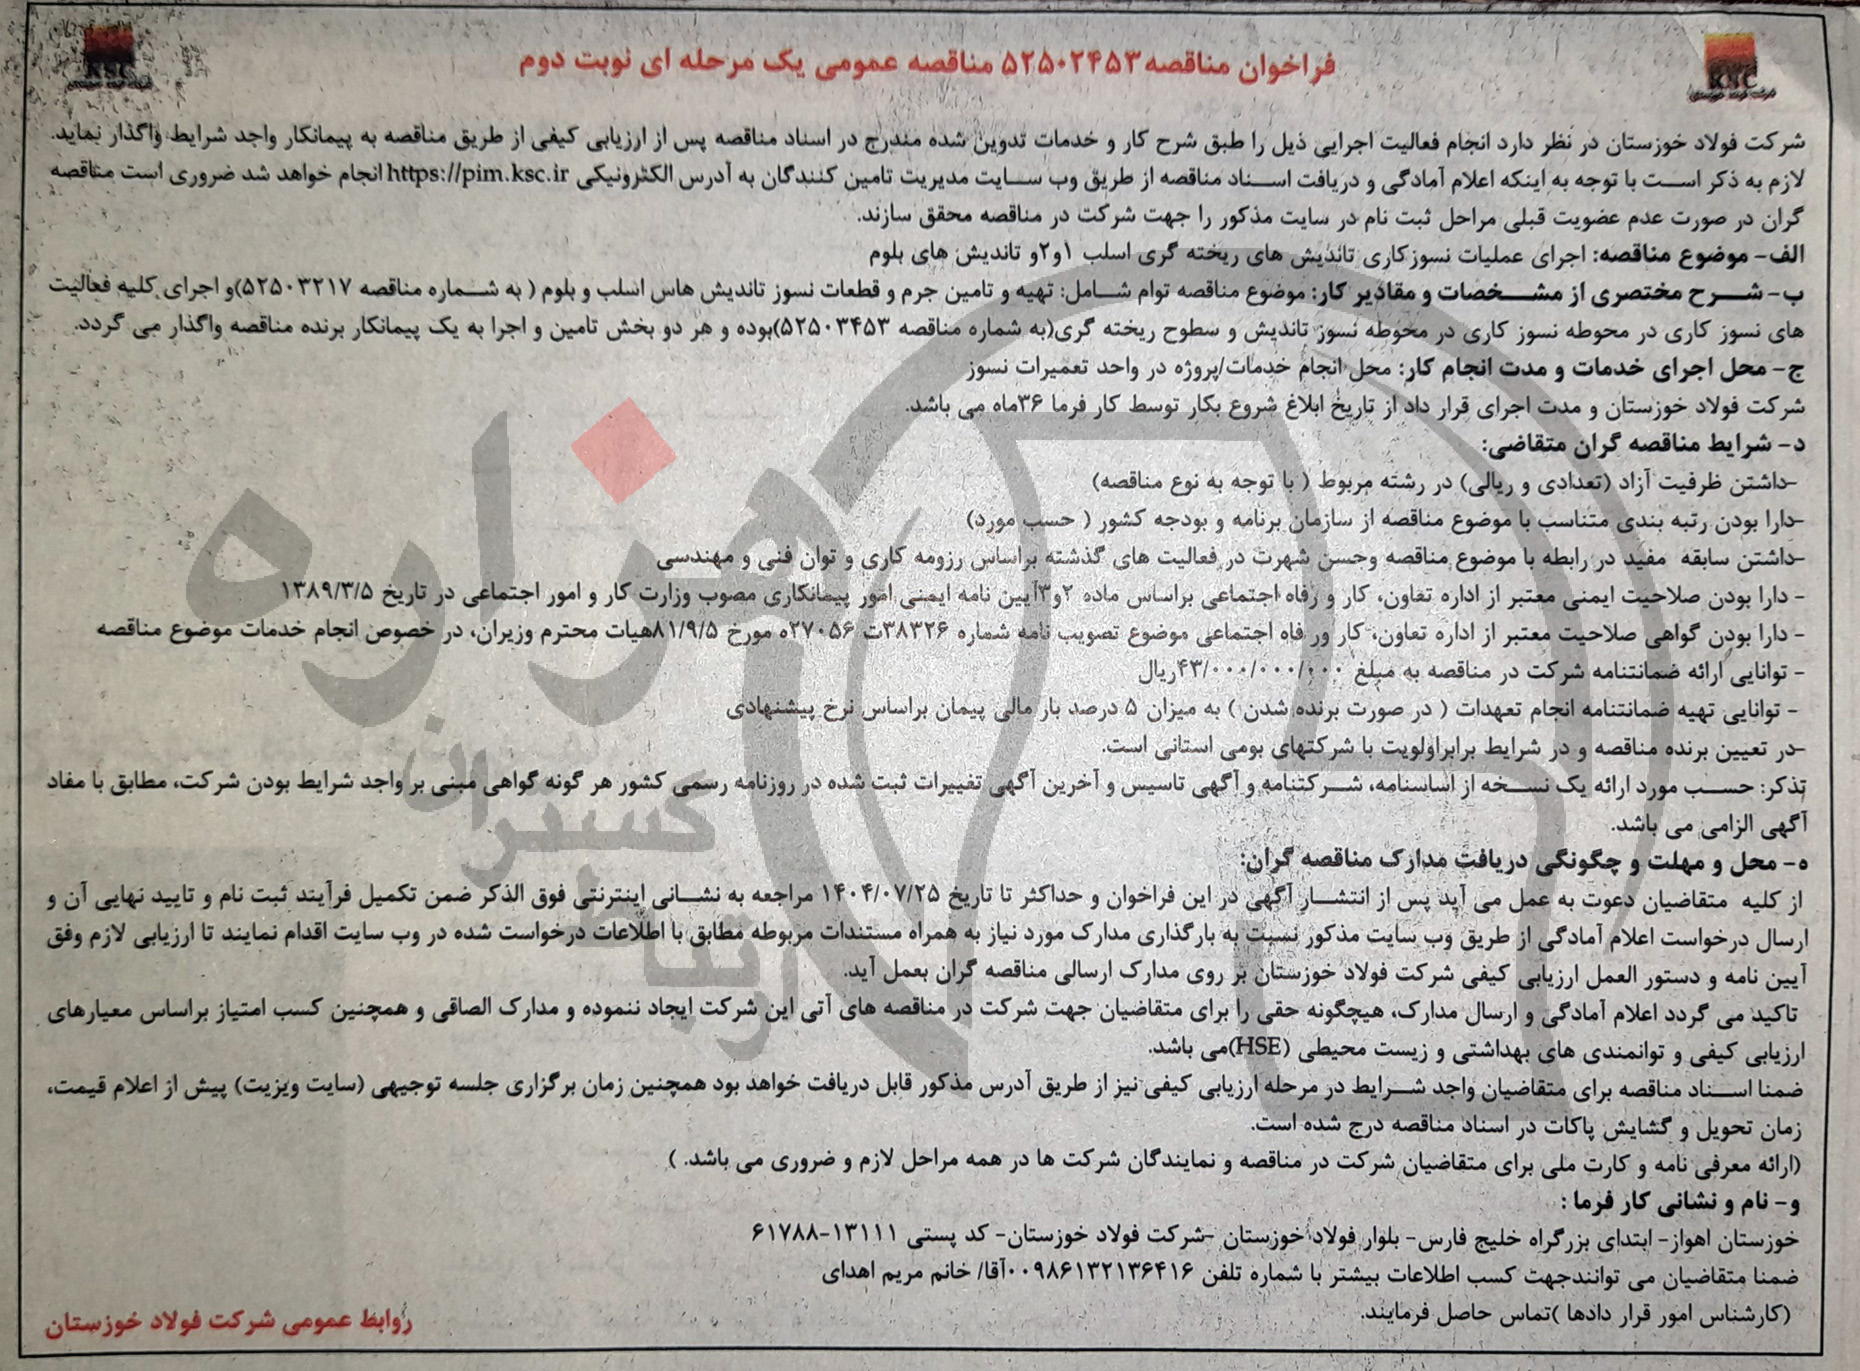 فراخوان مناقصه ۵۲۵۰۲۴۵۳ مناقصه عمومی یک مرحله ای نوبت دوم
KSC
KSC
شرکت فولاد خوزستان در نظر دارد انجام فعالیت اجرایی ذیل را طبق شرح کار و خدمات تدوین شده مندرج در اسناد مناقصه پس از ارزیابی کیفی از طریق مناقصه به پیمانکار واجد شرایط واگذار نماید.
لازم به ذکر است با توجه به اینکه اعلام آمادگی و دریافت اسناد مناقصه از طریق وب سایت مدیریت تامین کنندگان به آدرس الکترونیکی https://pim.ksc.ir انجام خواهد شد ضروری است مناقصه
گران در صورت عدم عضویت قبلی مراحل ثبت نام در سایت مذکور را جهت شرکت در مناقصه محقق سازند.
الف- موضوع مناقصه: اجرای عملیات نسوزکاری تاندیش های ریخته گری اسلب ۱و۲و تاندیش های بلوم
ب- شرح مختصری از مشخصات و مقادیر کار: موضوع مناقصه توام شامل: تهیه و تامین جرم و قطعات نسوز تاندیش هاس اسلب و بلوم ( به شماره مناقصه ۵۲۵۰۳۲۱۷)و اجرای کلیه فعالیت
های نسوز کاری در محوطه نسوز کاری در محوطه نسوز تاندیش و سطوح ریخته گری(به شماره مناقصه ۵۲۵۰۳۴۵۳)بوده و هر دو بخش تامین و اجرا به یک پیمانکار برنده مناقصه واگذار می گردد.
ج- محل اجرای خدمات و مدت انجام کار: محل انجام خدمات/پروژه در واحد تعمیرات نسوز
شرکت فولاد خوزستان و مدت اجرای قرار داد از تاریخ ابلاغ شروع بکار توسط کار فرما ۳۶ماه می باشد.
د- شرایط مناقصه گران متقاضی:
-داشتن ظرفیت آزاد (تعدادی و ریالی) در رشته مربوط ( با توجه به نوع مناقصه)
-دارا بودن رتبه بندی متناسب با موضوع مناقصه از سازمان برنامه و بودجه کشور ( حسب مورد)
-داشتن سابقه مفید در رابطه با موضوع مناقصه وحسن شهرت در فعالیت های گذشته براساس رزومه کاری و توان فنی و مهندسی
- دارا بودن صلاحیت ایمنی معتبر از اداره تعاون، کار و رفاه اجتماعی براساس ماده ۲و۳آیین نامه ایمنی امور پیمانکاری مصوب وزارت کار و امور اجتماعی در تاریخ ۱۳۸۹/۳/۵
- دارا بودن گواهی صلاحیت معتبر از اداره تعاون، کار ور فاه اجتماعی موضوع تصویب نامه شماره ۳۸۳۲۶ت ۲۷۰۵۶ه مورخ ۸۱/۹/۵هیات محترم وزیران، در خصوص انجام خدمات موضوع مناقصه
- توانایی ارائه ضمانتنامه شرکت در مناقصه به مبلغ ۴۳/۰۰۰/۰۰۰/۰۰۰ریال
- توانایی تهیه ضمانتنامه انجام تعهدات ( در صورت برنده شدن ) به میزان ۵ درصد بار مالی پیمان براساس نرخ پیشنهادی
-در تعیین برنده مناقصه و در شرایط برابراولویت با شرکتهای بومی استانی است.
تذکر: حسب مورد ارائه یک نسخه از اساسنامه، شرکتنامه و آگهی تاسیس و آخرین آگهی تغییرات ثبت شده در روزنامه رسمی کشور هر گونه گواهی مبنی بر واجد شرایط بودن شرکت، مطابق با مفاد
آگهی الزامی می باشد.
ه- محل و مهلت و چگونگی دریافت مدارک مناقصه گران:
از کلیه متقاضیان دعوت به عمل می آید پس از انتشار آگهی در این فراخوان و حداکثر تا تاریخ ۱۴۰۴/۰۷/۲۵ مراجعه به نشانی اینترنتی فوق الذکر ضمن تکمیل فرآیند ثبت نام و تایید نهایی آن و
ارسال درخواست اعلام آمادگی از طریق وب سایت مذکور نسبت به بارگذاری مدارک مورد نیاز به همراه مستندات مربوطه مطابق با اطلاعات درخواست شده در وب سایت اقدام نمایند تا ارزیابی لازم وفق
آیین نامه و دستور العمل ارزیابی کیفی شرکت فولاد خوزستان بر روی مدارک ارسالی مناقصه گران بعمل آید.
تاکید می گردد اعلام آمادگی و ارسال مدارک، هیچگونه حقی را برای متقاضیان جهت شرکت در مناقصه های آتی این شرکت ایجاد ننموده و مدارک الصاقی و همچنین کسب امتیاز براساس معیارهای
ارزیابی کیفی و توانمندی های بهداشتی و زیست محیطی (HSE)می باشد.
ضمنا اسناد مناقصه برای متقاضیان واجد شرایط در مرحله ارزیابی کیفی نیز از طریق آدرس مذکور قابل دریافت خواهد بود همچنین زمان برگزاری جلسه توجیهی (سایت ویزیت) پیش از اعلام قیمت،
زمان تحویل و گشایش پاکات در اسناد مناقصه درج شده است.
(ارائه معرفی نامه و کارت ملی برای متقاضیان شرکت در مناقصه و نمایندگان شرکت ها در همه مراحل لازم و ضروری می باشد. )
و- نام و نشانی کار فرما :
خوزستان اهواز- ابتدای بزرگراه خلیج فارس- بلوار فولاد خوزستان -شرکت فولاد خوزستان- کد پستی ۱۳۱۱۱-۶۱۷۸۸
ضمنا متقاضیان می توانندجهت کسب اطلاعات بیشتر با شماره تلفن ۰۰۹۸۶۱۳۲۱۳۶۴۱۶آقا/ خانم مریم اهدای
(کارشناس امور قرار دادها )تماس حاصل فرمایند.
روابط عمومی شرکت فولاد خوزستان
هزاره
گستران
ارتباط